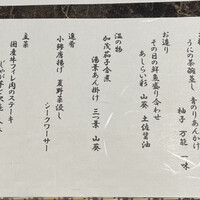 うにの茶碗蒸し 青のりあんかけ
柚子 万能 一味
お造り
その日の鮮魚盛り合わせ
あしらい彩々 山葵 土佐醤油
温の物
加茂茄子含煮
湯葉あん掛け 三つ葉 山葵
進肴
小鮎唐揚げ 夏野菜浸し
シークワーサー
主菜
国産牛フィレ肉のステーキ